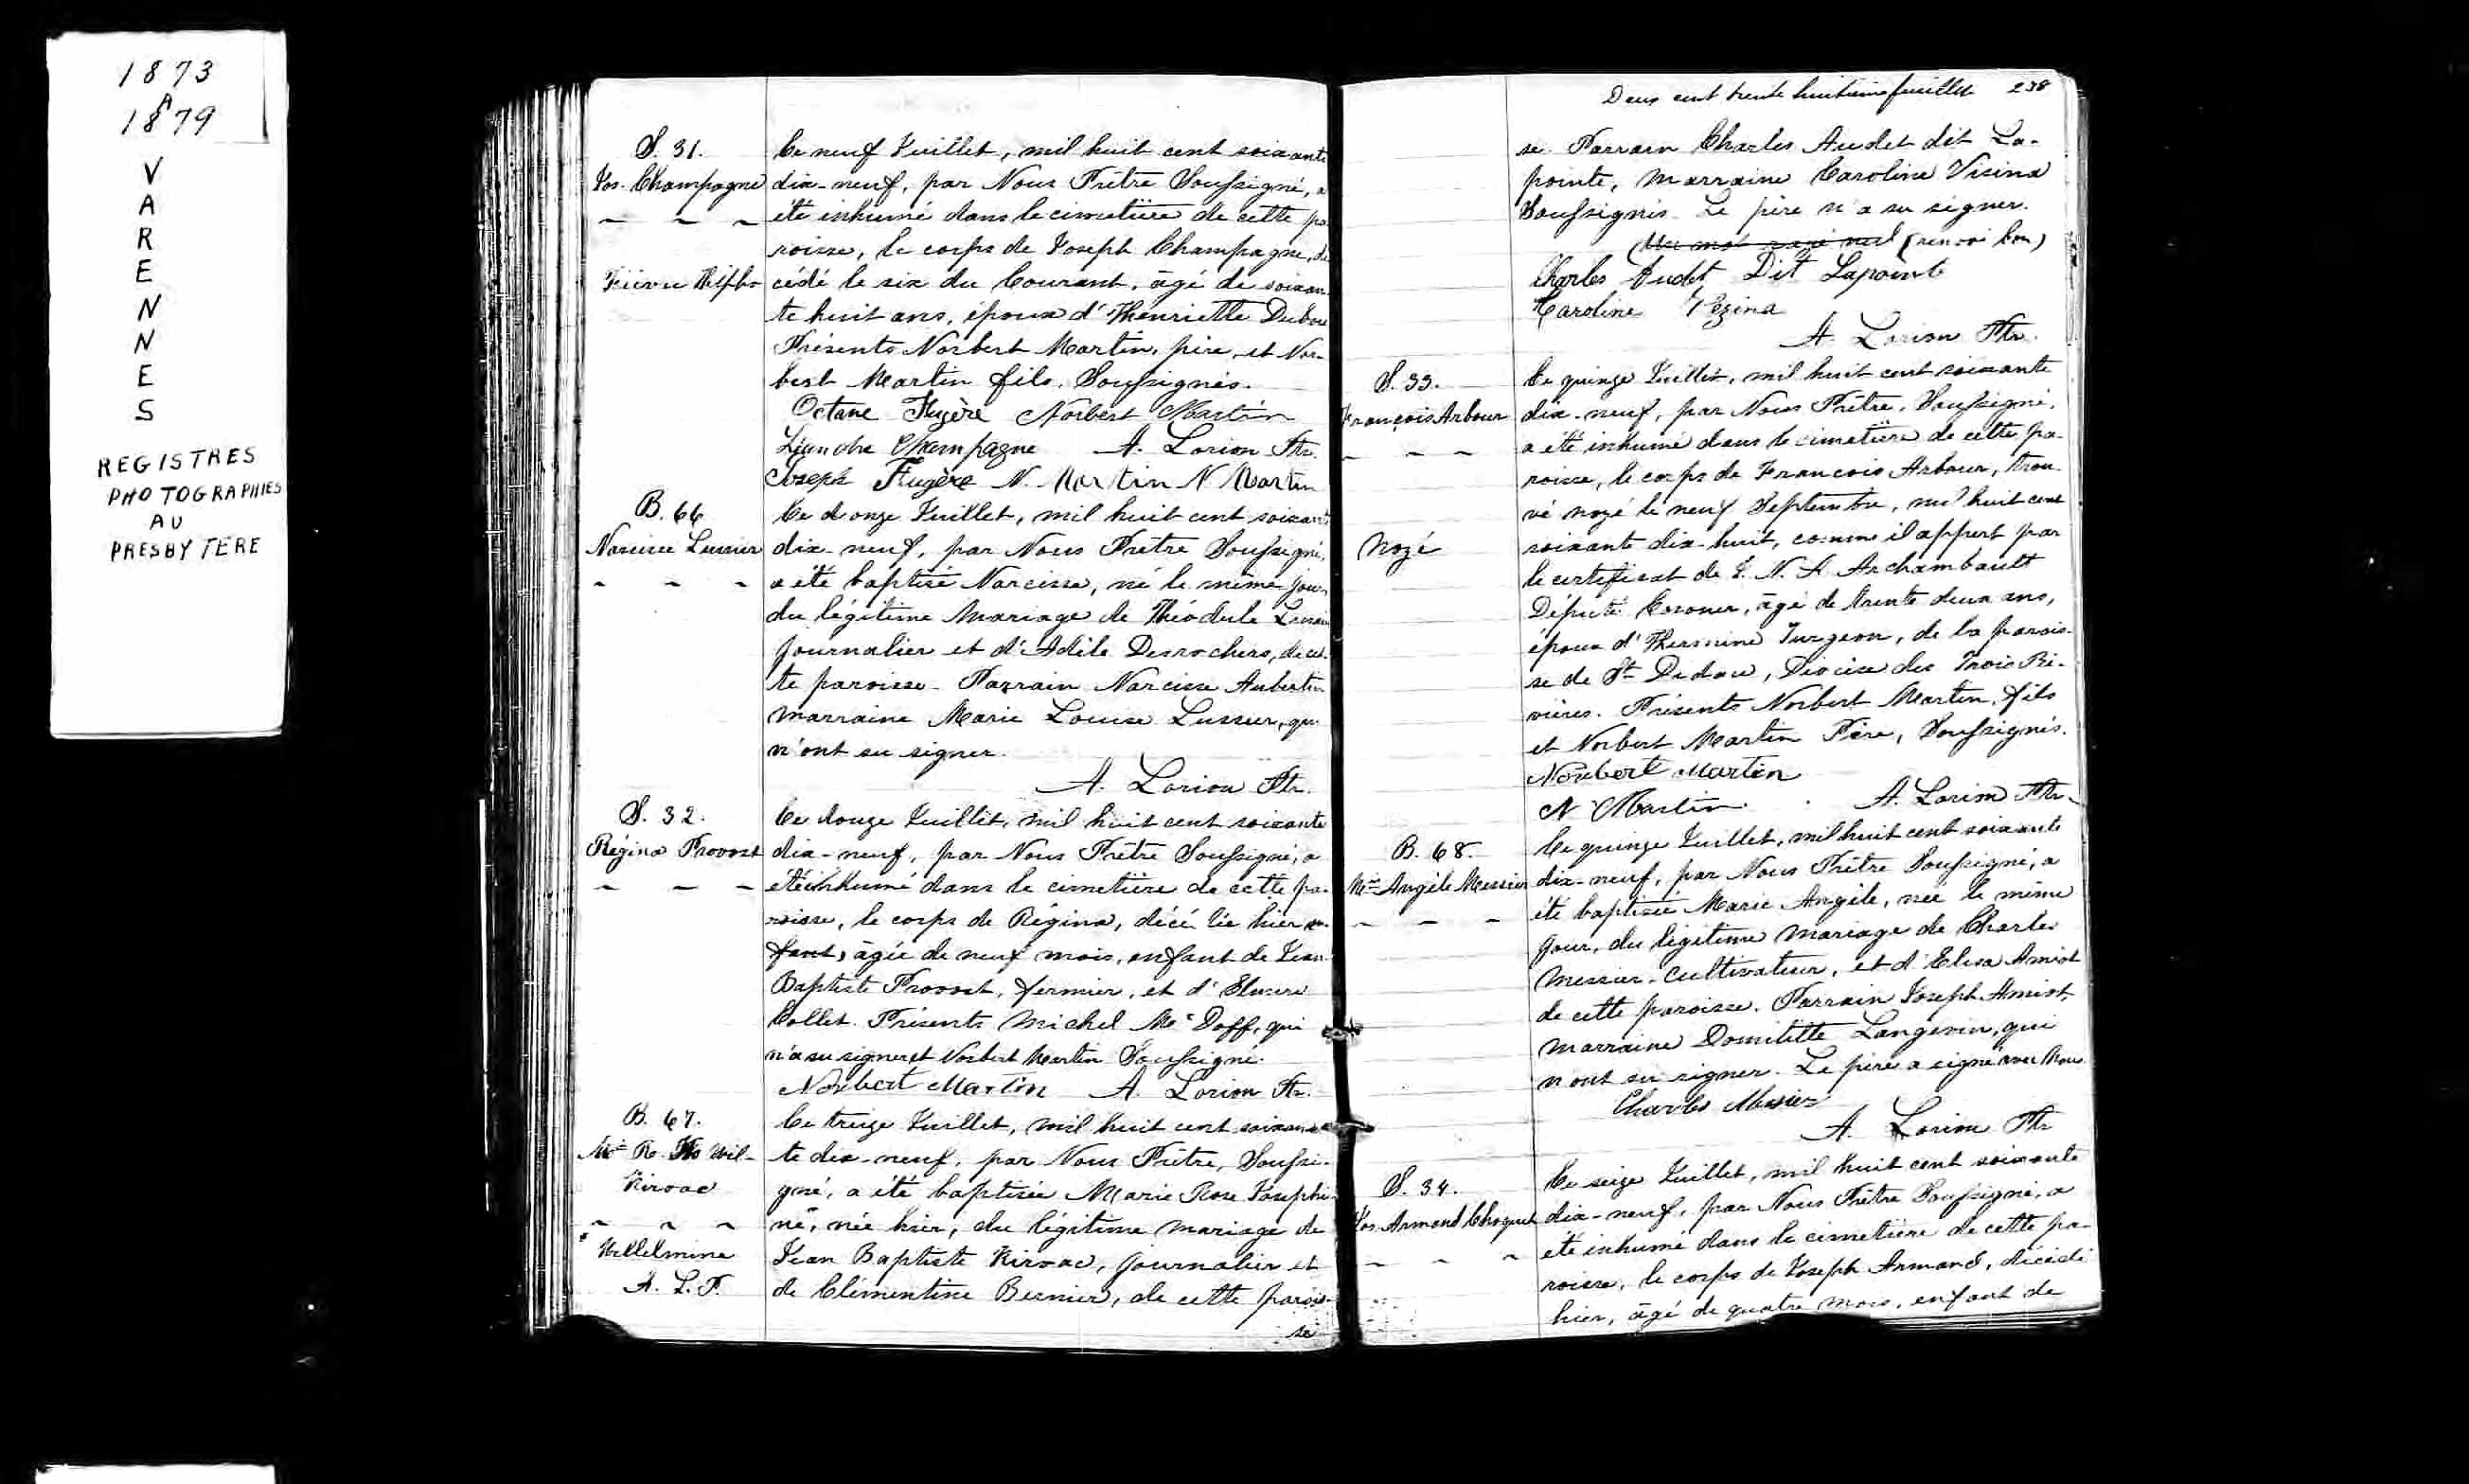 1873
A
1879
V
A
R
E
N
N
E
S
REGISTRES
PHOTOGRAPHIES
AU
PRESBYTERE
S. 31.
Jos. Champagne
Ce neuf Juillet, mil huit cent soixante
dix-neuf, par Nous Prêtre Soussigné, a
été inhumé dans le cimetière de cette pa
roisse, le corps de Joseph Champagne, dé
cédé le six du Courant, âgé de soixan
te huit ans, époux d'Henriette
Présents Norbert Martin, père, et Nor-
bert Martin fils, Soussignés.
Octave Fugère Norbert Martin
Champagne A. Lorion Ptr.
Joseph Fugère N. Martin N Martin
B. 66
Narcisse Lussier
Ce onze Juillet, mil huit cent soixante
dix-neuf, par Nous Prêtre Soussigné,
a été baptisé Narcisse, né le même jour,
du légitime Mariage de Théodule Lussier
journalier et d'Adèle Desrochers, de cet-
te paroisse. Parrain Narcisse Aubertin
marraine Marie Louise Lussier, qui
n'ont su signer.
A. Lorion Ptr.
S. 32.
Régina Provost
Ce douze Juillet, mil huit cent soixante
dix-neuf, par Nous Prêtre Soussigné, a
été inhumé dans le cimetière de cette pa-
roisse, le corps de Régina, décédée hier en-
fant, âgée de neuf mois, enfant de Jean
Baptiste Provost, fermier, et d'
Collet. Présents Michel Mc Doff, qui
n'a su signer et Norbert Martin Soussigné.
Norbert Martin A. Lorion Ptr.
B. 67.
Mie R. Jos Wil-
Kirouac
Willelmine
A. L. P.
Ce treize Juillet, mil huit cent soixan-
te dix-neuf, par Nous Prêtre, Soussi-
gné, a été baptisée Marie Rose Joséphi
ne, née hier, du légitime mariage de
Jean Baptiste Kirouac, journalier et
de Clémentine Bernier, de cette parois-
se
Deux cent trente huitième feuillet 238
se. Parrain Charles Audet dit La-
pointe, marraine Caroline Visina
Soussignés. Le père n'a su signer.
(Un mot rayé nul (renvoi bon)
Charles Audet Dit Lapointe
Caroline Vezina
A. Lorion Ptr.
S. 33.
François Arbour
Noyé
Ce quinze Juillet, mil huit cent soixante
dix-neuf, par Nous Prêtre, Soussigné,
a été inhumé dans le cimetière de cette pa-
roisse, le corps de François Arbour, trou-
vé noyé le neuf Septembre, mil huit cent
soixante dix-huit, comme il appert par
le certificat de J. N. A. Archambault
Député Coroner, âgé de trente deux ans,
époux d'Hermine Turgeon, de la parois-
se de St Didace, Diocèse des Trois Ri-
vières. Présents Norbert Martin, fils
et Norbert Martin Père, Soussignés.
Norbert Martin
N Martin. A. Lorion Ptr.
B. 68.
Mie Angèle Messier
Ce quinze Juillet, mil huit cent soixante
dix-neuf, par Nous Prêtre Soussigné, a
été baptisée Marie Angèle, née le même
jour, du légitime mariage de Charles
Messier, cultivateur, et d'Elisa Amiot
de cette paroisse. Parrain Joseph Amiot,
marraine Domitille Langevin, qui
n'ont su signer. Le père a signé avec Nous
Charles Messier
A. Lorion Ptr
S. 34.
Jos Armand Choquet
Ce seize Juillet, mil huit cent soixante
dix-neuf, par Nous Prêtre Soussigné, a
été inhumé dans le cimetière de cette pa-
roisse, le corps de Joseph Armand, décédé
hier, âgé de quatre mois, enfant de